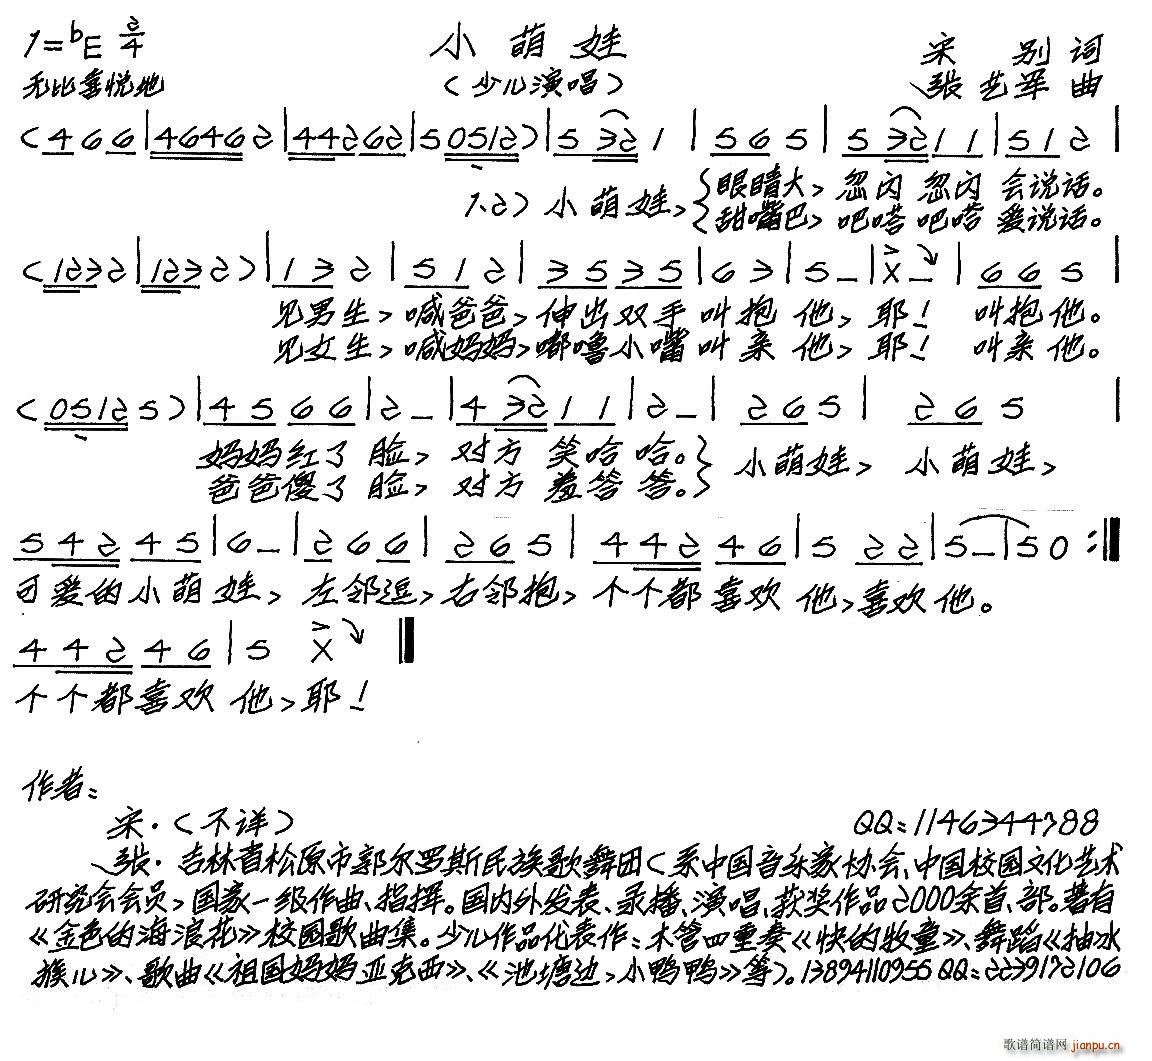 1=bE 2/4
小萌娃
宋 别 词
无比喜悦地
(少儿演唱)
张艺军 曲
(4 6 6|4 6 4 6 2|4 4 2 6 2|5 0 5 1 2)|5 3 2 1|5 6 5|5 3 2 1 1|5 1 2|
眼睛大,忽闪 忽闪 会说话。
1.2)小萌娃,
甜嘴巴,吧嗒 吧嗒 爱说话。
(1 2 3 2|1 2 3 2)|1 3 2|5 1 2|3 5 3 5|6 3|5 -|X -|6 6 5|
见男生,喊爸爸,伸出双手叫抱他,耶! 叫抱他。
见女生,喊妈妈,嘟噜小嘴叫亲他,耶! 叫亲他。
(0 5 1 2 5)|4 5 6 6|2 -|4 3 2 1 1|2 -|2 6 5|2 6 5|
妈妈红了脸,对方笑哈哈。 小萌娃,小萌娃,
爸爸傻了脸,对方羞答答。
5 4 2 4 5|6 -|2 6 6|2 6 5|4 4 2 4 6|5 2 2|5 -|5 0:‖
可爱的小萌娃,左邻逗,右邻抱,个个都喜欢他,喜欢他。
4 4 2 4 6|5 X‖
个个都喜欢他,耶!
作者:
宋·(不详) QQ:1146344788
张·吉林省松原市郭尔罗斯民族歌舞团(系中国音乐家协会、中国校园文化艺术
研究会会员,国家一级作曲、指挥。国内外发表、录播、演唱、获奖作品2000余首、部。著有
《金色的海浪花》校园歌曲集。少儿作品代表作:木管四重奏《快的牧童》、舞蹈《抽冰
猴儿》、歌曲《祖国妈妈亚克西》、《池塘边,小鸭鸭》等)。13894110955 QQ:2239172106
歌谱简谱网 jianpu.cn